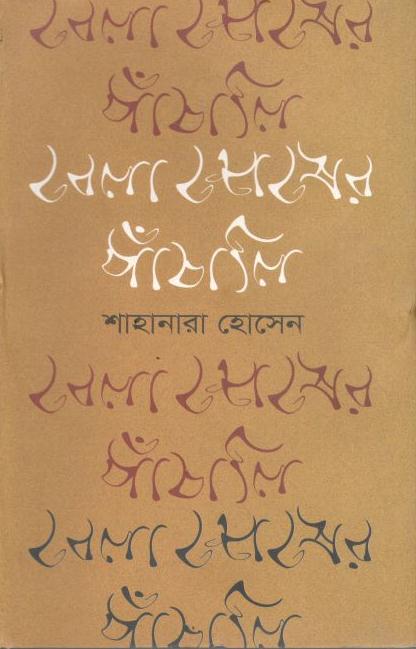 বেলা শেষের
পাঁচালি
বেলা শেষের
পাঁচালি
শাহানারা হোসেন
বেলা শেষের
পাঁচালি
বেলা শেষের
পাঁচালি